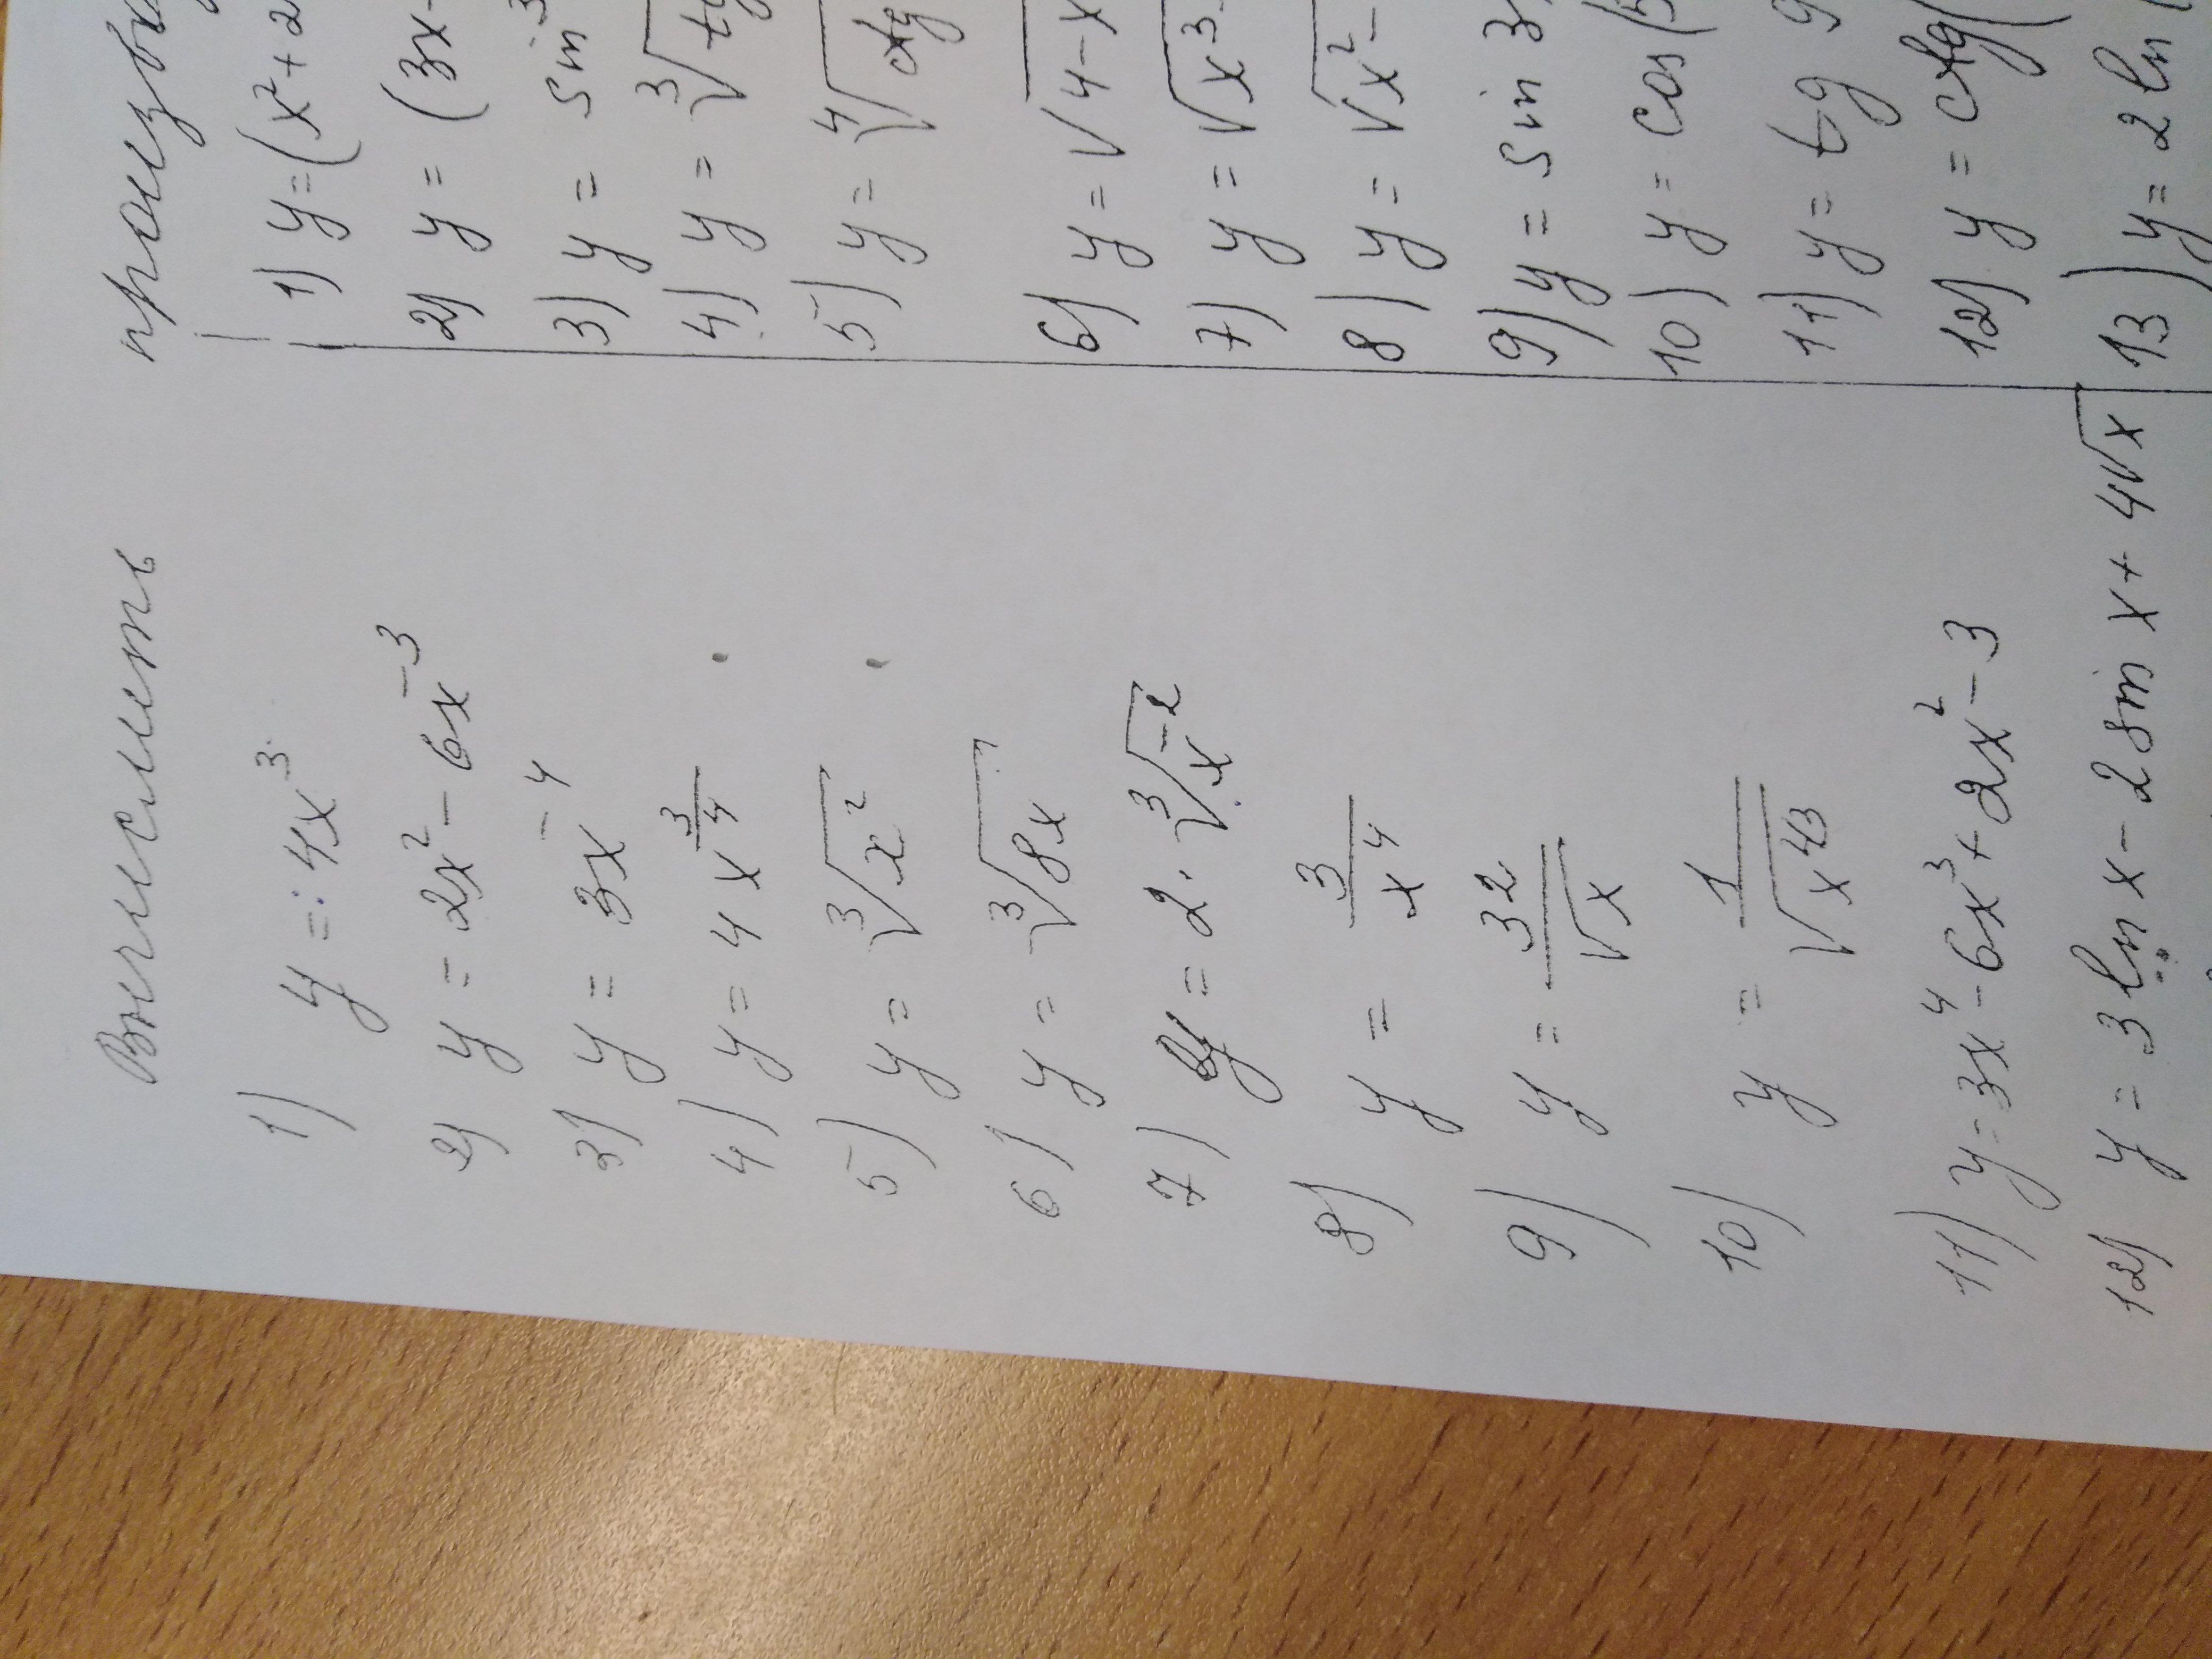 Вычислить произв
1) y = 4x³
2) y = 2x² - 6x⁻³
3) y = 3x⁻⁴
4) y = 4x^(3/4)
5) y = ∛x²
6) y = ∛8x
7) y = 2 · ∛x⁻²
8) y = 3/x⁴
9) y = 32/√x
10) y = 1/√x⁴³
11) y = 3x⁴ - 6x³ + 2x² - 3
12) y = 3 ln x - 2 sin x + 4√x
1) y = (x² + 2
2) y = (3x -
3) y = sin³
4) y = ∛tg
5) y = ∜ctg
6) y = √4 - x
7) y = √x³ -
8) y = √x² -
9) y = sin 3
10) y = cos (5
11) y = tg 9
12) y = ctg (
13) y = 2 ln (